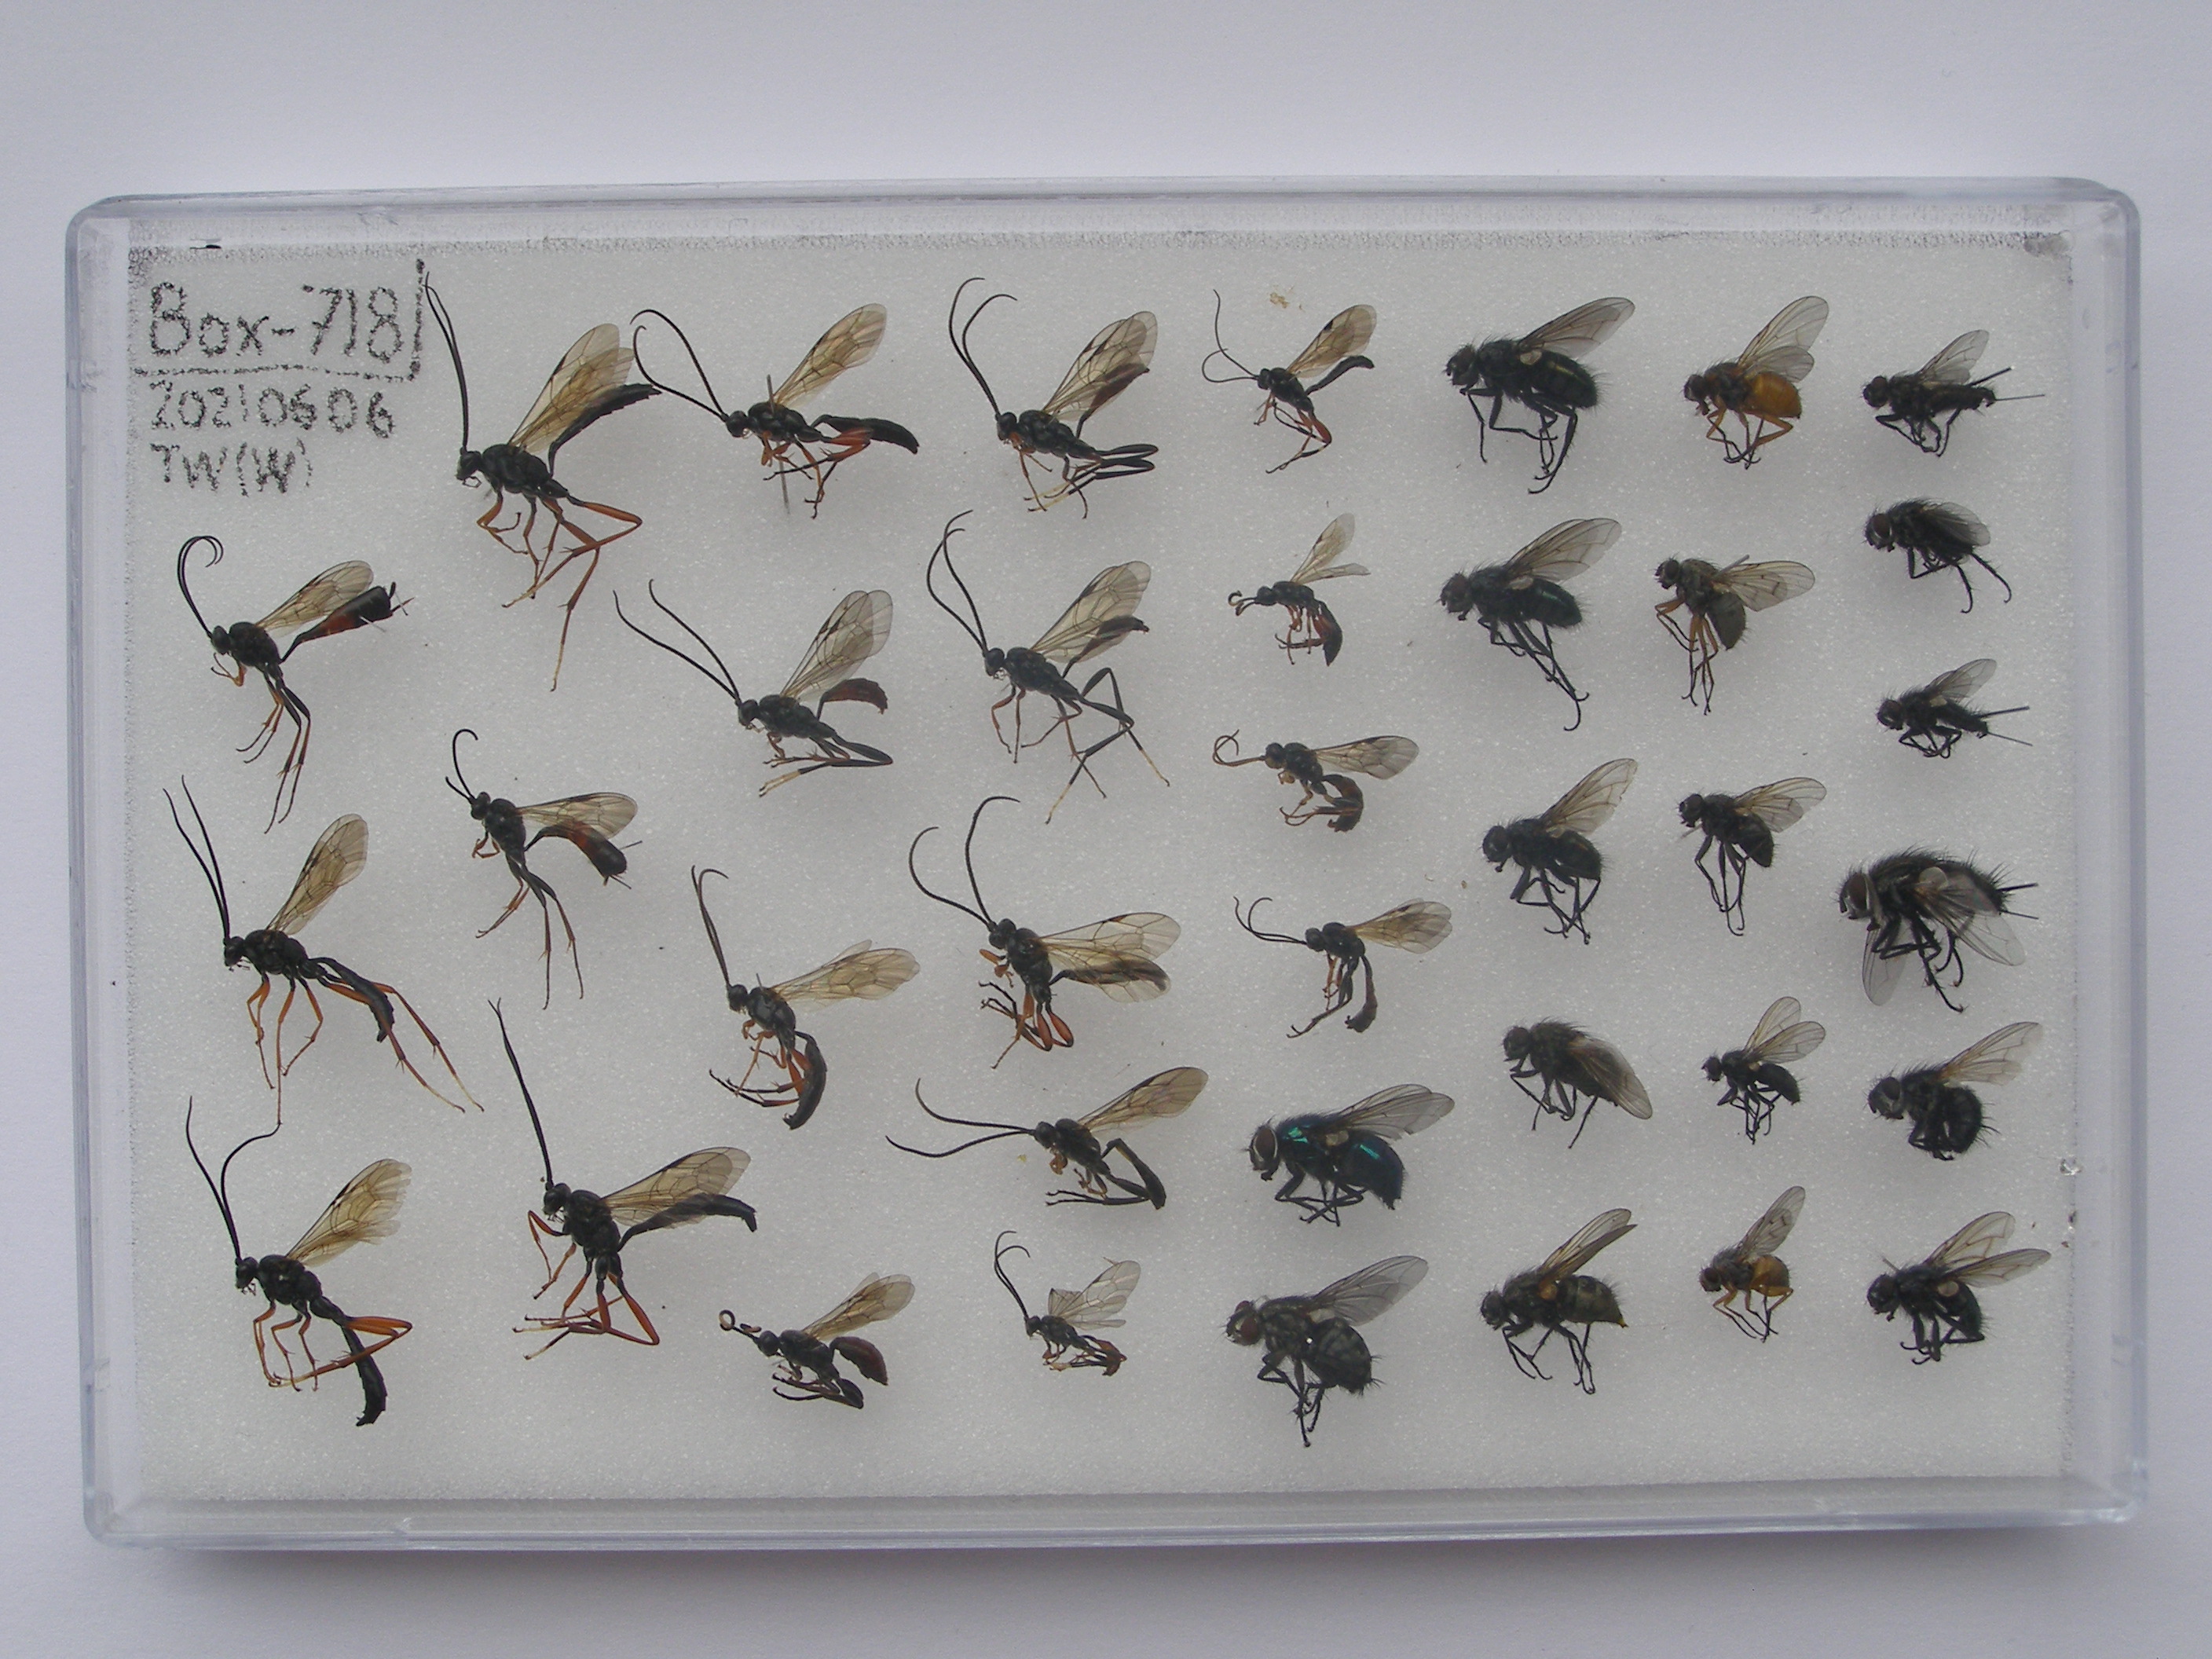 Box-718
20210606
TW(W)